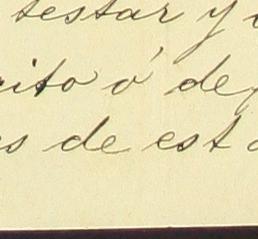 testar y
rito ó de
s de est